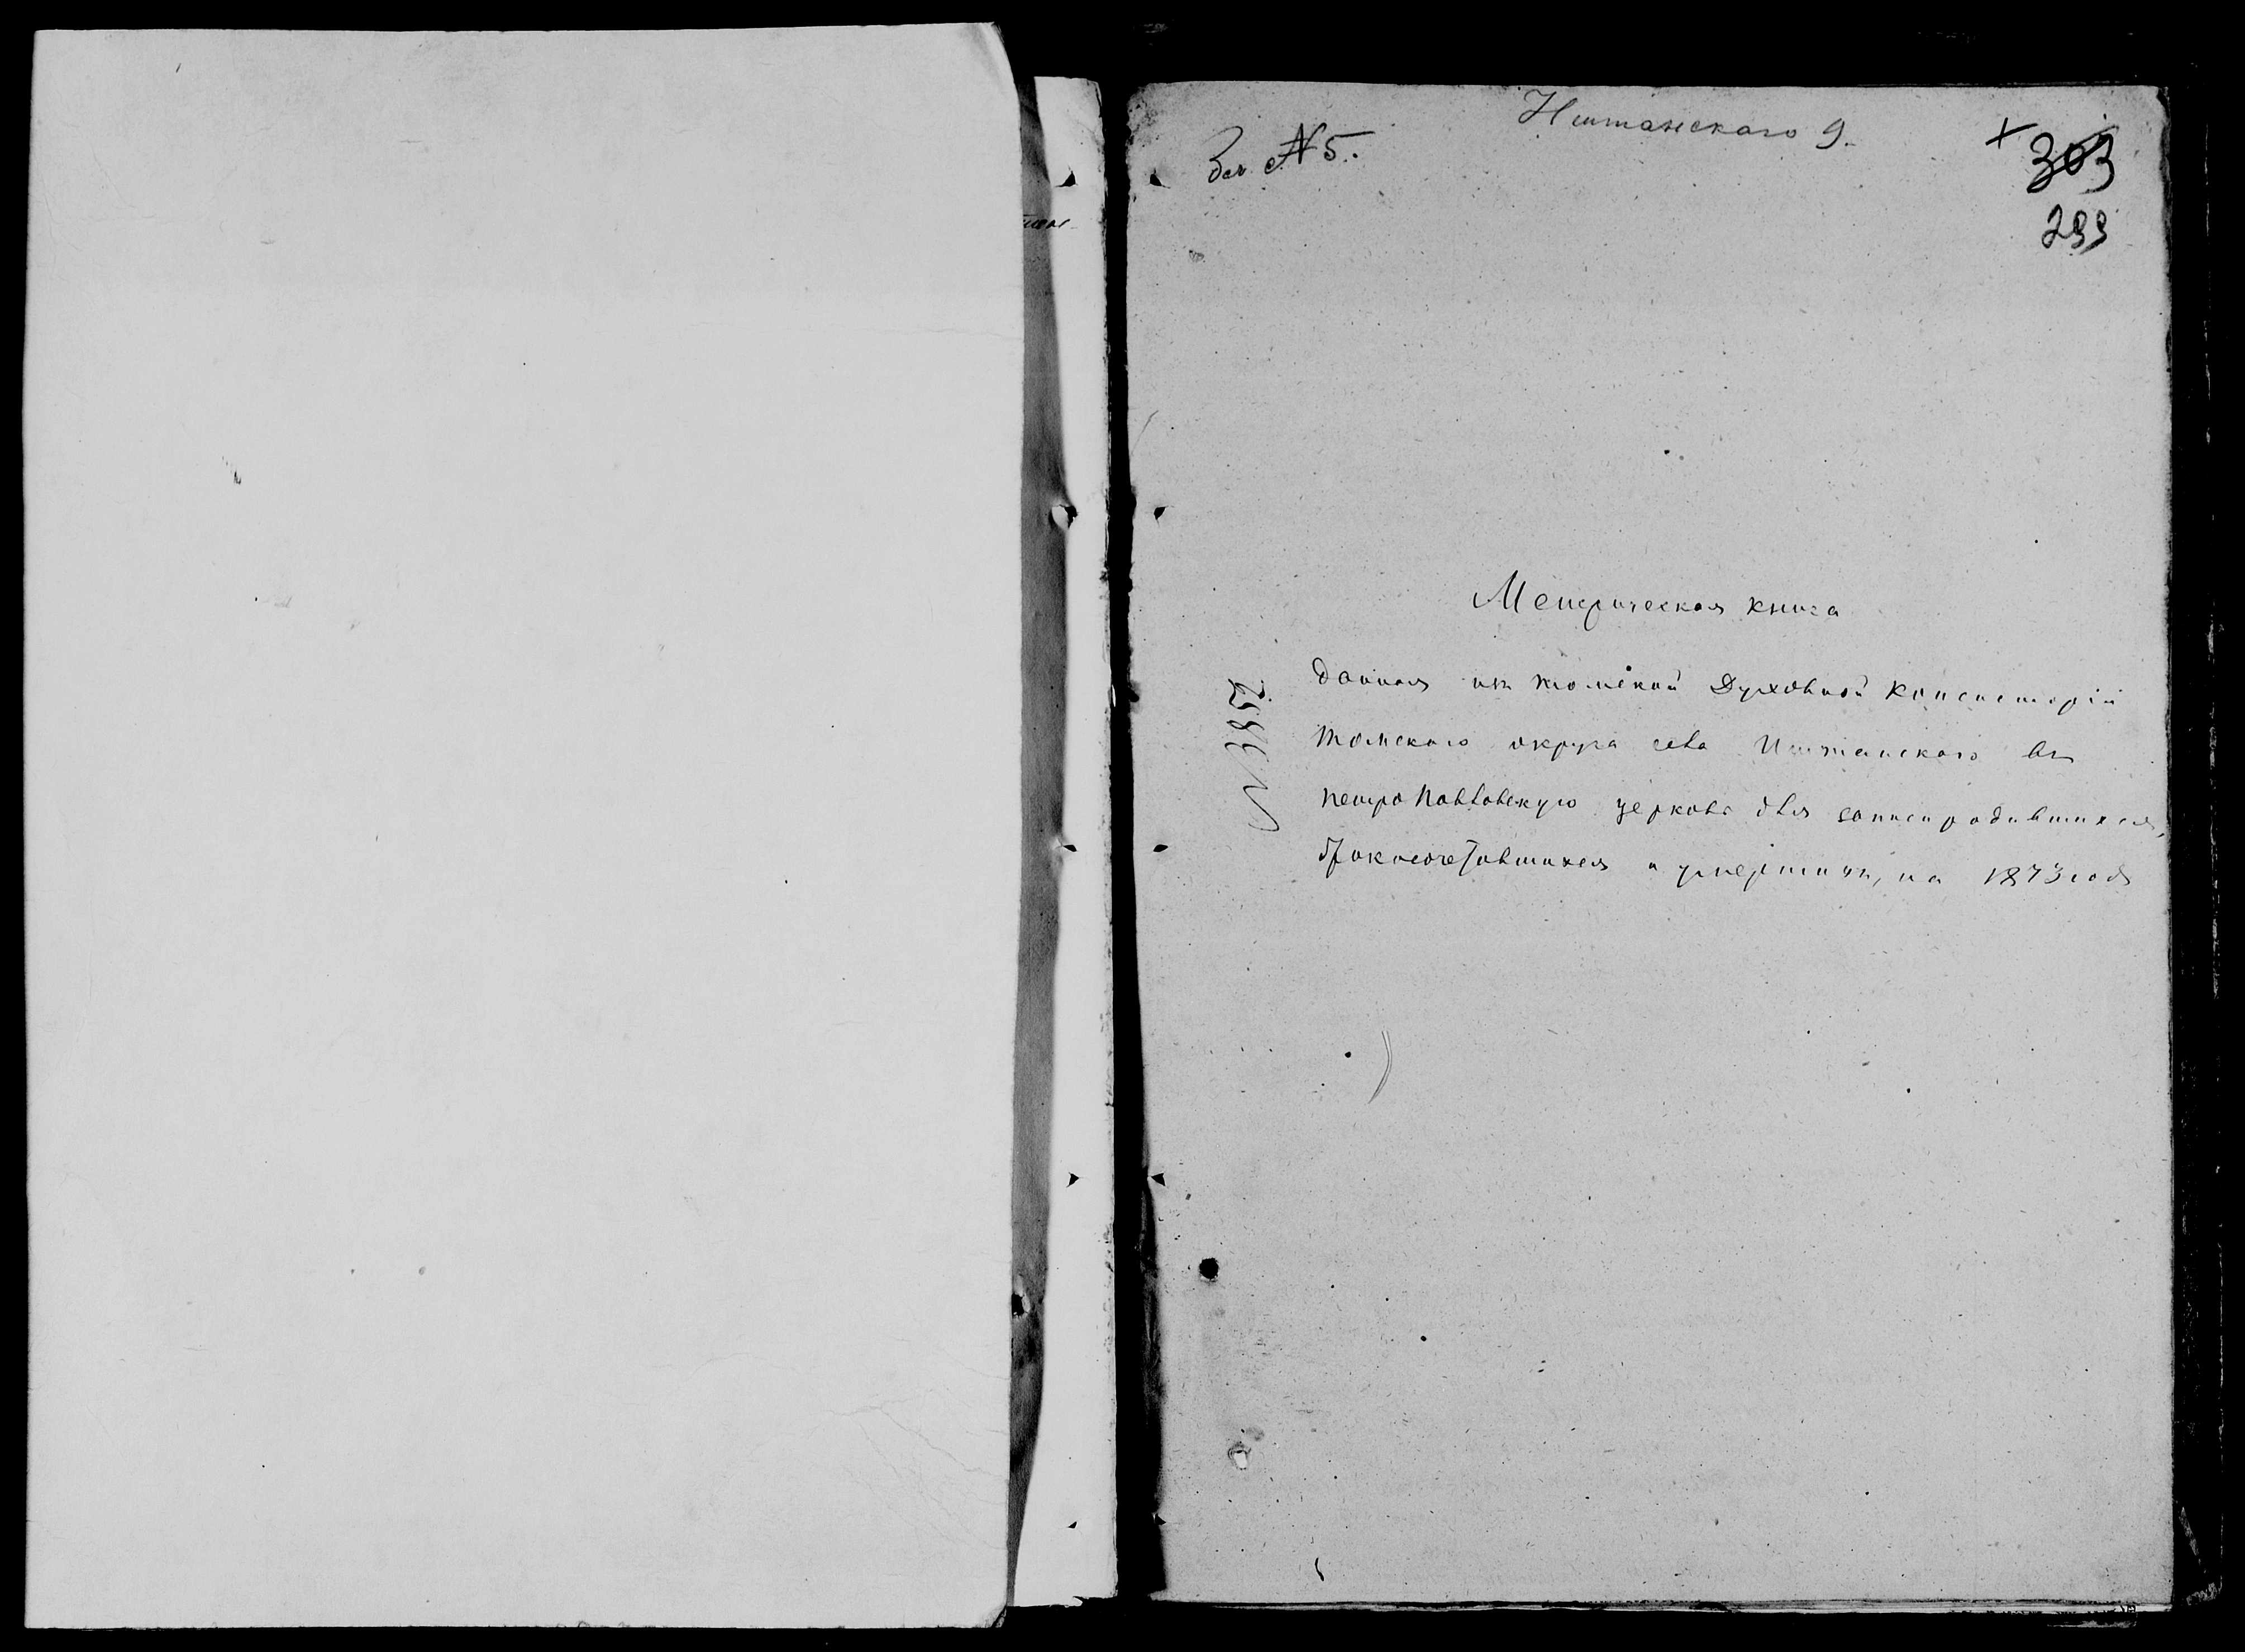 Иштанскаго 9.
За № 5.
303
299
Метрическая книга
данная изъ томской Духовной Консисторіи
томскаго округа села Иштанскаго въ
петро Павловскую церковь для записи родившихся,
бракосочетавшихся и умершихъ, на 1873 годъ